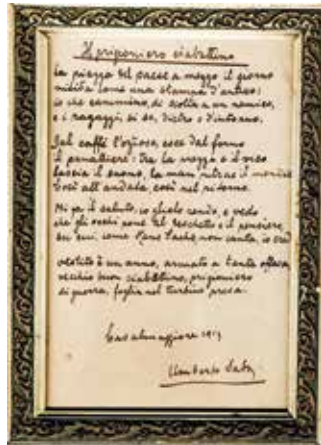 Il prigioniero ciabattino
La piazza del paese a mezzo il giorno
nitida come una stampa d'antico:
io che cammino, di scolta a un nemico,
e i ragazzi, si sa, dietro e d'intorno.
Dal caffè l'oziosa, esce dal forno
il panettiere: tra la mozza e il vico
lascia il suono, la man
Così all'andata, così nel ritorno.
Mi fa il saluto, io glielo rendo, e vedo
che gli occhi pone al deschetto e il pensiero
su cui, come Hans Sachs, non canta, io credo
vestito è un anno, armato a tanta offesa,
vecchio buon ciabattino, prigioniero
di guerra, foglia nel turbine presa.
Casalmaggiore
Umberto Saba